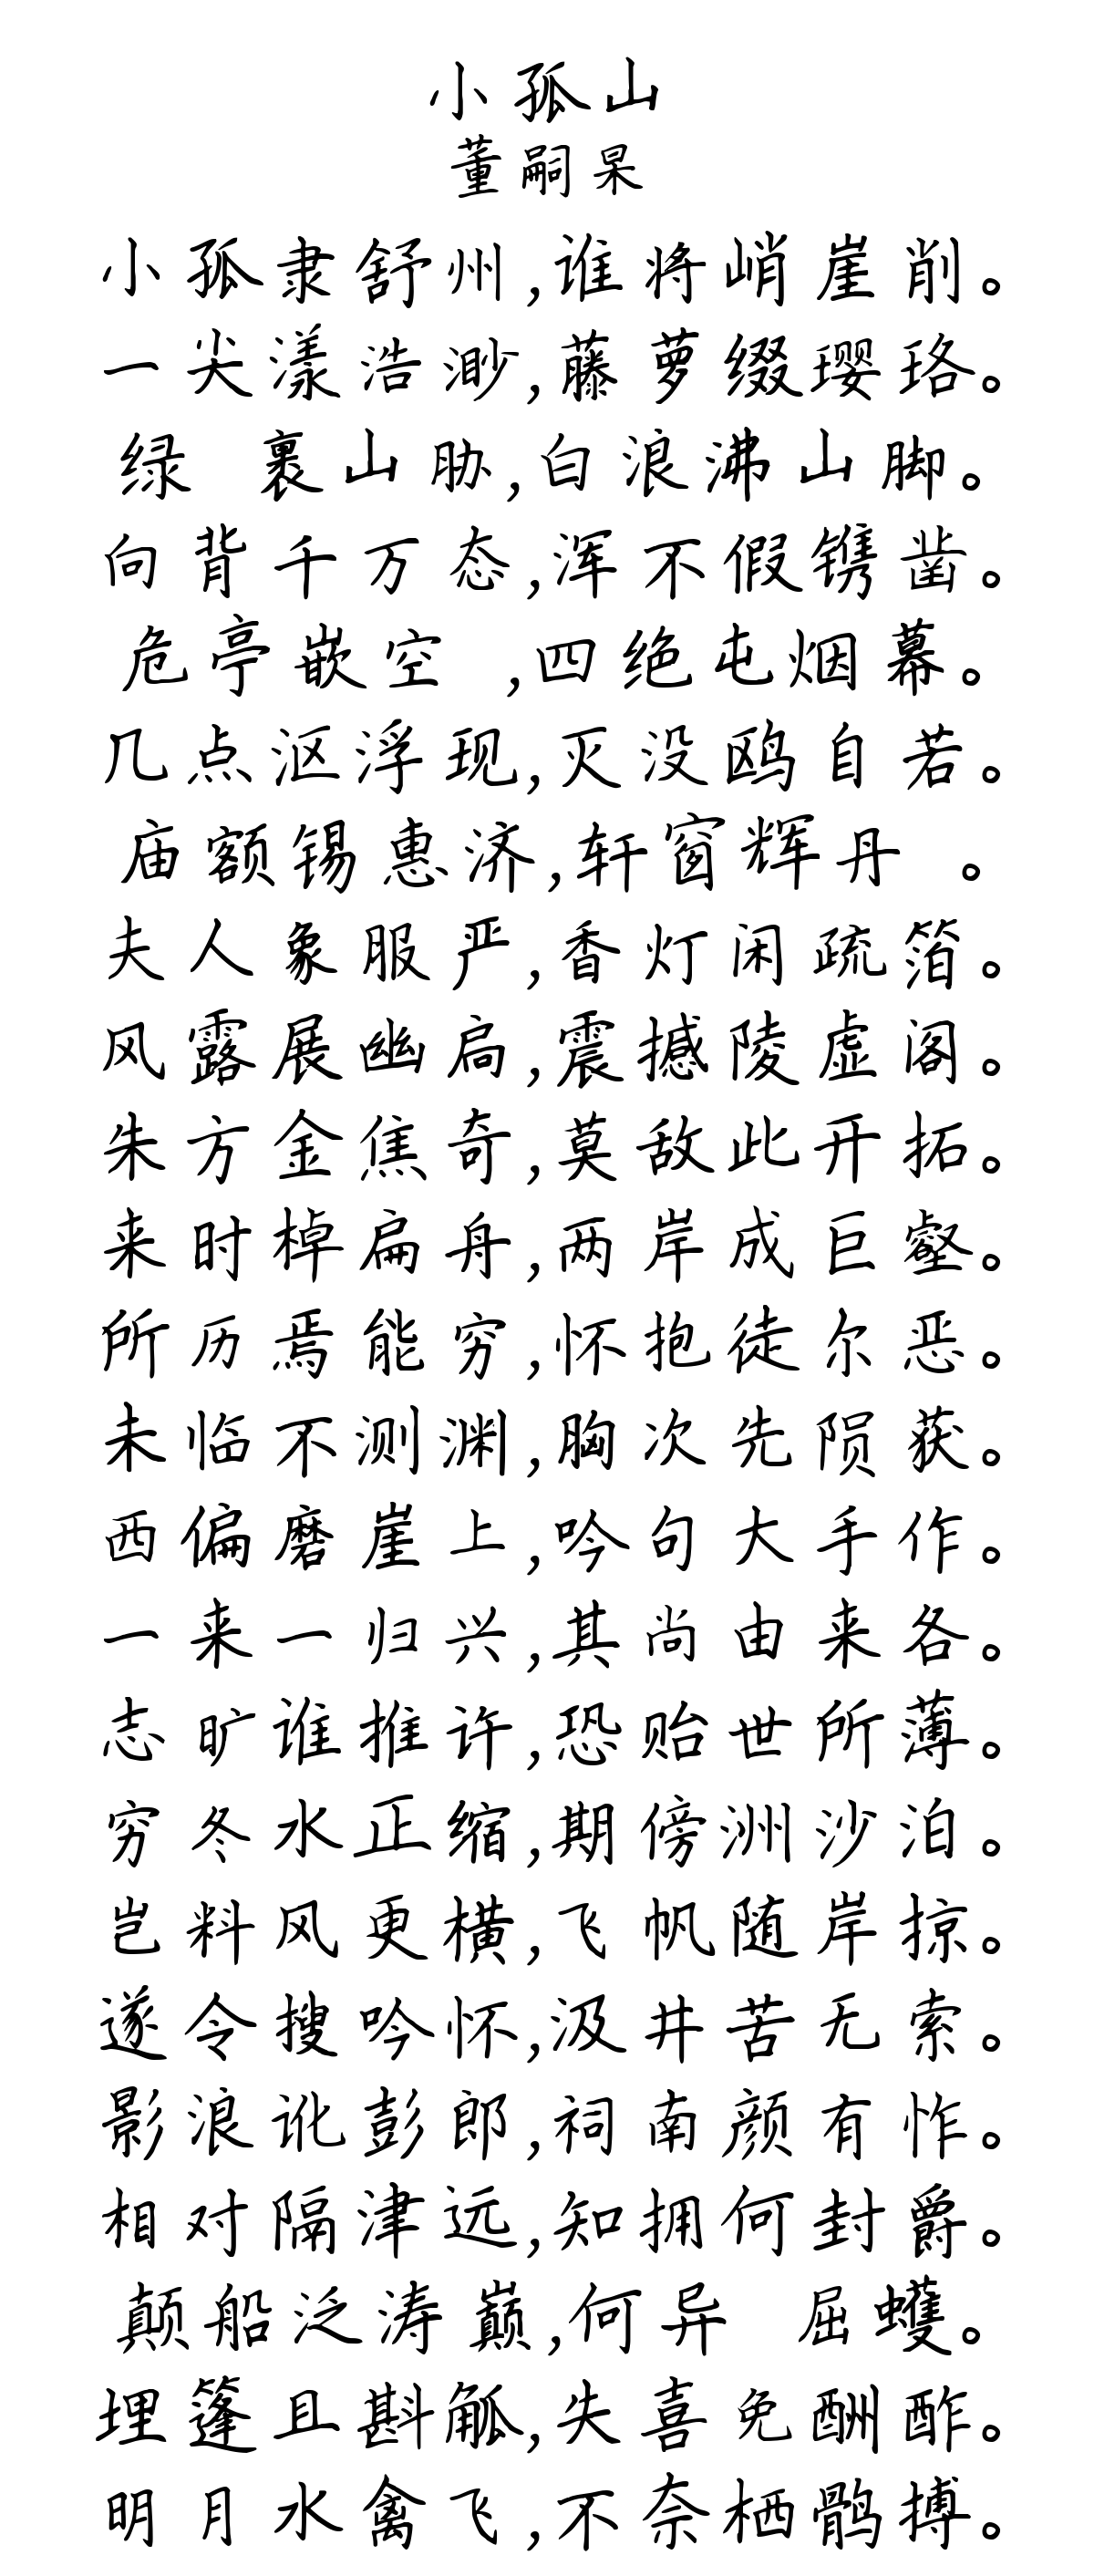 小孤山
董嗣杲
小孤隶舒州,谁将峭崖削。
一尖漾浩渺,藤萝缀璎珞。
绿 裹山胁,白浪沸山脚。
向背千万态,浑不假镌凿。
危亭嵌空 ,四绝屯烟幕。
几点沤浮现,灭没鸥自若。
庙额锡惠济,轩窗辉丹 。
夫人象服严,香灯闲疏箔。
风露展幽扃,震撼陵虚阁。
朱方金焦奇,莫敌此开拓。
来时棹扁舟,两岸成巨壑。
所历焉能穷,怀抱徒尔恶。
未临不测渊,胸次先陨获。
西偏磨崖上,吟句大手作。
一来一归兴,其尚由来各。
志旷谁推许,恐贻世所薄。
穷冬水正缩,期傍洲沙泊。
岂料风更横,飞帆随岸掠。
遂令搜吟怀,汲井苦无索。
影浪讹彭郎,祠南颜有怍。
相对隔津远,知拥何封爵。
颠船泛涛巅,何异 屈蠖。
埋篷且斟觚,失喜免酬酢。
明月水禽飞,不奈栖鹘搏。